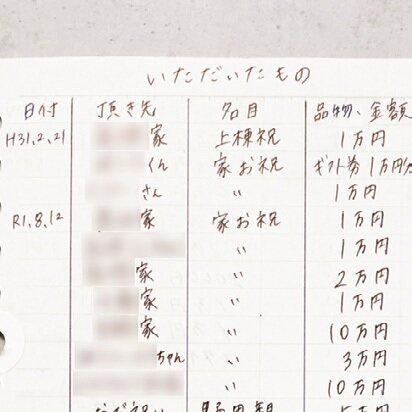 いただいたもの
日付 頂き先 名目 品物、金額
H31.2.21 家 上棟祝 1万円
くん 家お祝 ギフト券1万円
さん 〃 1万円
R1.8.12 家 家お祝 1万円
〃 1万円
家 〃 2万円
家 〃 1万円
家 〃 10万円
ちゃん 〃 3万円
〃 10万円